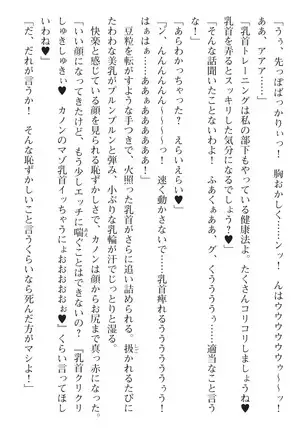 「うぅ、先っぽばっかりぃっ！　胸おかしく……ンッ！　んはウウウウウゥ～～ッ！
あぁ、アアア……」
「乳首トレーニングは私の部下もやっている健康法よ。たくさんコリコリしましょうね♥
乳首を弄るとスッキリした気分になるでしょう？♥」
「そんな話聞いたことないわよ！　ふあくぁああ、グ、くうううううぅ……適当なこと言う
なぁ！」
「あらわかっちゃった？　えらいえらい♥」
「ゾ、んんんんん～～～～～！　速く動かさないで……乳首痺れるうううううううぅっ！
はぁはぁ……ああああああああぁ！」
豆粒を転がすような手つきで、火照った乳首がさらに追い詰められる。扱かれるたびに
たわわな美乳がプルンプルンと弾み、小ぶりな乳輪が汗でじっとりと湿る。
快楽と感じている顔を見られる恥ずかしさで、カノンは顔からお尻まで真っ赤になった。
「いい顔になってきたけど、もう少しエッチに喘ぐことはできないの？　『乳首クリクリ
しゅきしゅきぃ♥　カノンのマゾ乳首イッちゃうにょおおおおおぉ♥』くらい言ってほし
いわね♥」
「だ、だれが言うか！　そんな恥ずかしいこと言うくらいなら死んだ方がマシよ！」